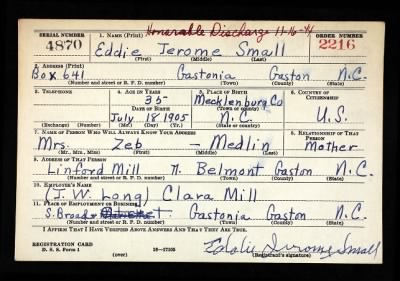 Honorable Discharge 11-16-41
SERIAL NUMBER 1. NAME (Print) ORDER NUMBER
4870 Eddie Jerome Small 2216
(First) (Middle) (Last)
2. ADDRESS (Print)
Box 641 Gastonia Gaston N.C.
(Number and street or R. F. D. number) (Town) (County) (State)
3. TELEPHONE 4. AGE IN YEARS 5. PLACE OF BIRTH 6. COUNTRY OF CITIZENSHIP
35 Mecklenburg Co
DATE OF BIRTH (Town or county)
July 18 1905 N.C. U.S.
(Exchange) (Number) (Mo.) (Day) (Yr.) (State or country)
7. NAME OF PERSON WHO WILL ALWAYS KNOW YOUR ADDRESS 8. RELATIONSHIP OF THAT PERSON
Mrs. Zeb - Medlin Mother
(Mr., Mrs., Miss) (First) (Middle) (Last)
9. ADDRESS OF THAT PERSON
Linford Mill N. Belmont Gaston N.C.
(Number and street or R. F. D. number) (Town) (County) (State)
10. EMPLOYER'S NAME
(J. W. Long) Clara Mill
11. PLACE OF EMPLOYMENT OR BUSINESS
S. Broad Gastonia Gaston N.C.
(Number and street or R. F. D. number) (Town) (County) (State)
I AFFIRM THAT I HAVE VERIFIED ABOVE ANSWERS AND THAT THEY ARE TRUE.
REGISTRATION CARD
D. S. S. Form 1 16-17105 Eddie Jerome Small
(over) (Registrant's signature)